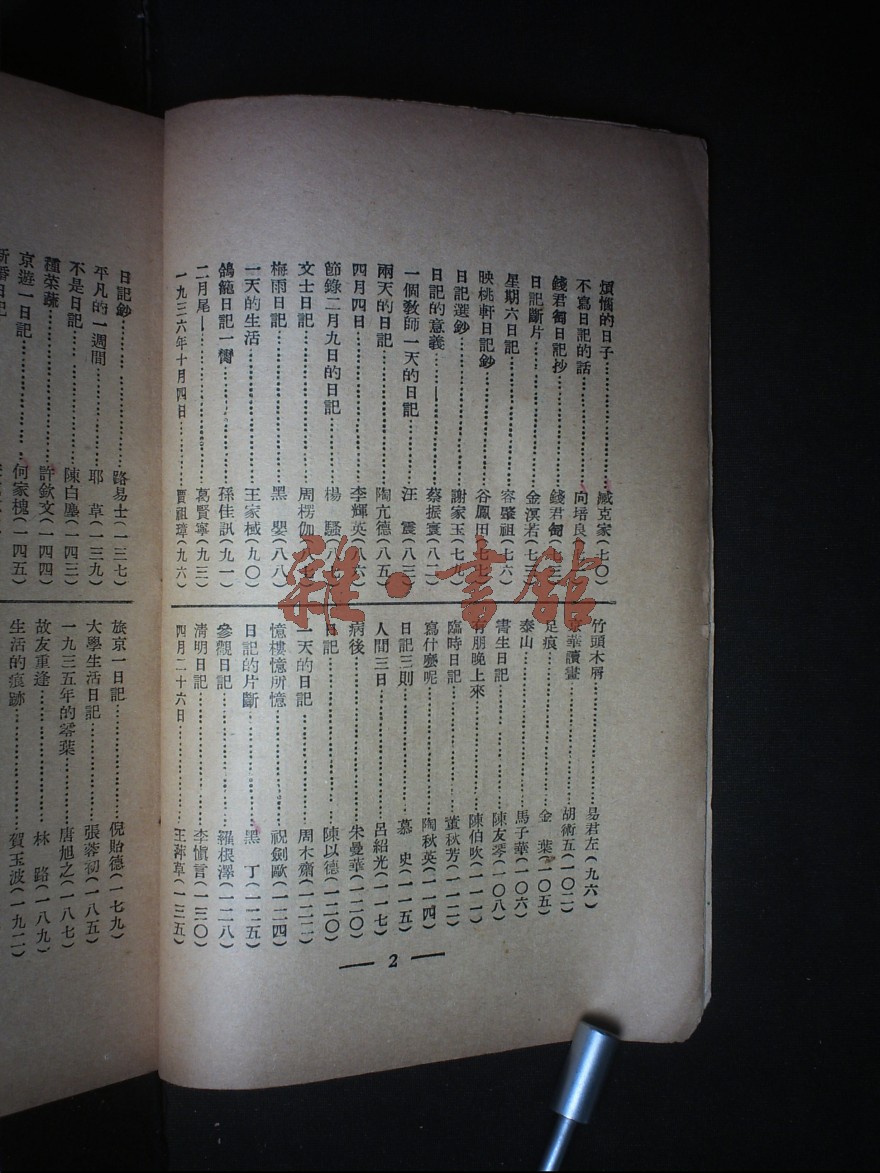 煩惱的日子……臧克家(七〇)
不寫日記的話……向培良(七一)
錢君匋日記抄……錢君匋
日記斷片……金溟若(七三)
星期六日記……容肇祖(七六)
映桃軒日記鈔……谷鳳田(七七)
日記選鈔……謝家玉(七九)
日記的意義……蔡振寰(八二)
一個教師一天的日記……汪　震(八三)
兩天的日記……陶亢德(八五)
四月四日……李輝英(八六)
節錄二月九日的日記……楊　騷(八七)
文士日記……周楞伽(八七)
梅雨日記……黑　嬰(八八)
一天的生活……王家棫(九〇)
鴿籠日記一臠……孫佳訊(九一)
二月尾……葛賢寧(九三)
一九三六年十月四日……賈祖璋(九六)
竹頭木屑……易君左(九六)
京華讀畫……胡術五(一〇二)
足痕……金　葉(一〇五)
泰山……馬子華(一〇六)
書生日記……陳友琴(一〇八)
有朋晚上來……陳伯吹(一一一)
臨時日記……董秋芳(一一二)
寫什麼呢……陶秋英(一一四)
日記三則……慕　史(一一五)
人間三日……呂紹光(一一七)
病後……朱曼華(一二〇)
日記……陳以德(一二〇)
一天的日記……周木齋(一二二)
憶樓憶所憶……祝劍歐(一二四)
日記的片斷……黑　丁(一二五)
參觀日記……羅根澤(一二八)
清明日記……李愼言(一三〇)
四月二十六日……王萍草(一三五)
— 2 —
日記鈔……路易士(一三七)
平凡的一週間……耶　草(一三九)
不是日記……陳白塵(一四三)
種菜蔬……許欽文(一四四)
京遊一日記……何家槐(一四五)
旅京一日記……倪貽德(一七九)
大學生活日記……張蓉初(一八五)
一九三五年的零葉……唐旭之(一八七)
故友重逢……林　路(一八九)
生活的痕跡……賀玉波(一九二)
雜·書館